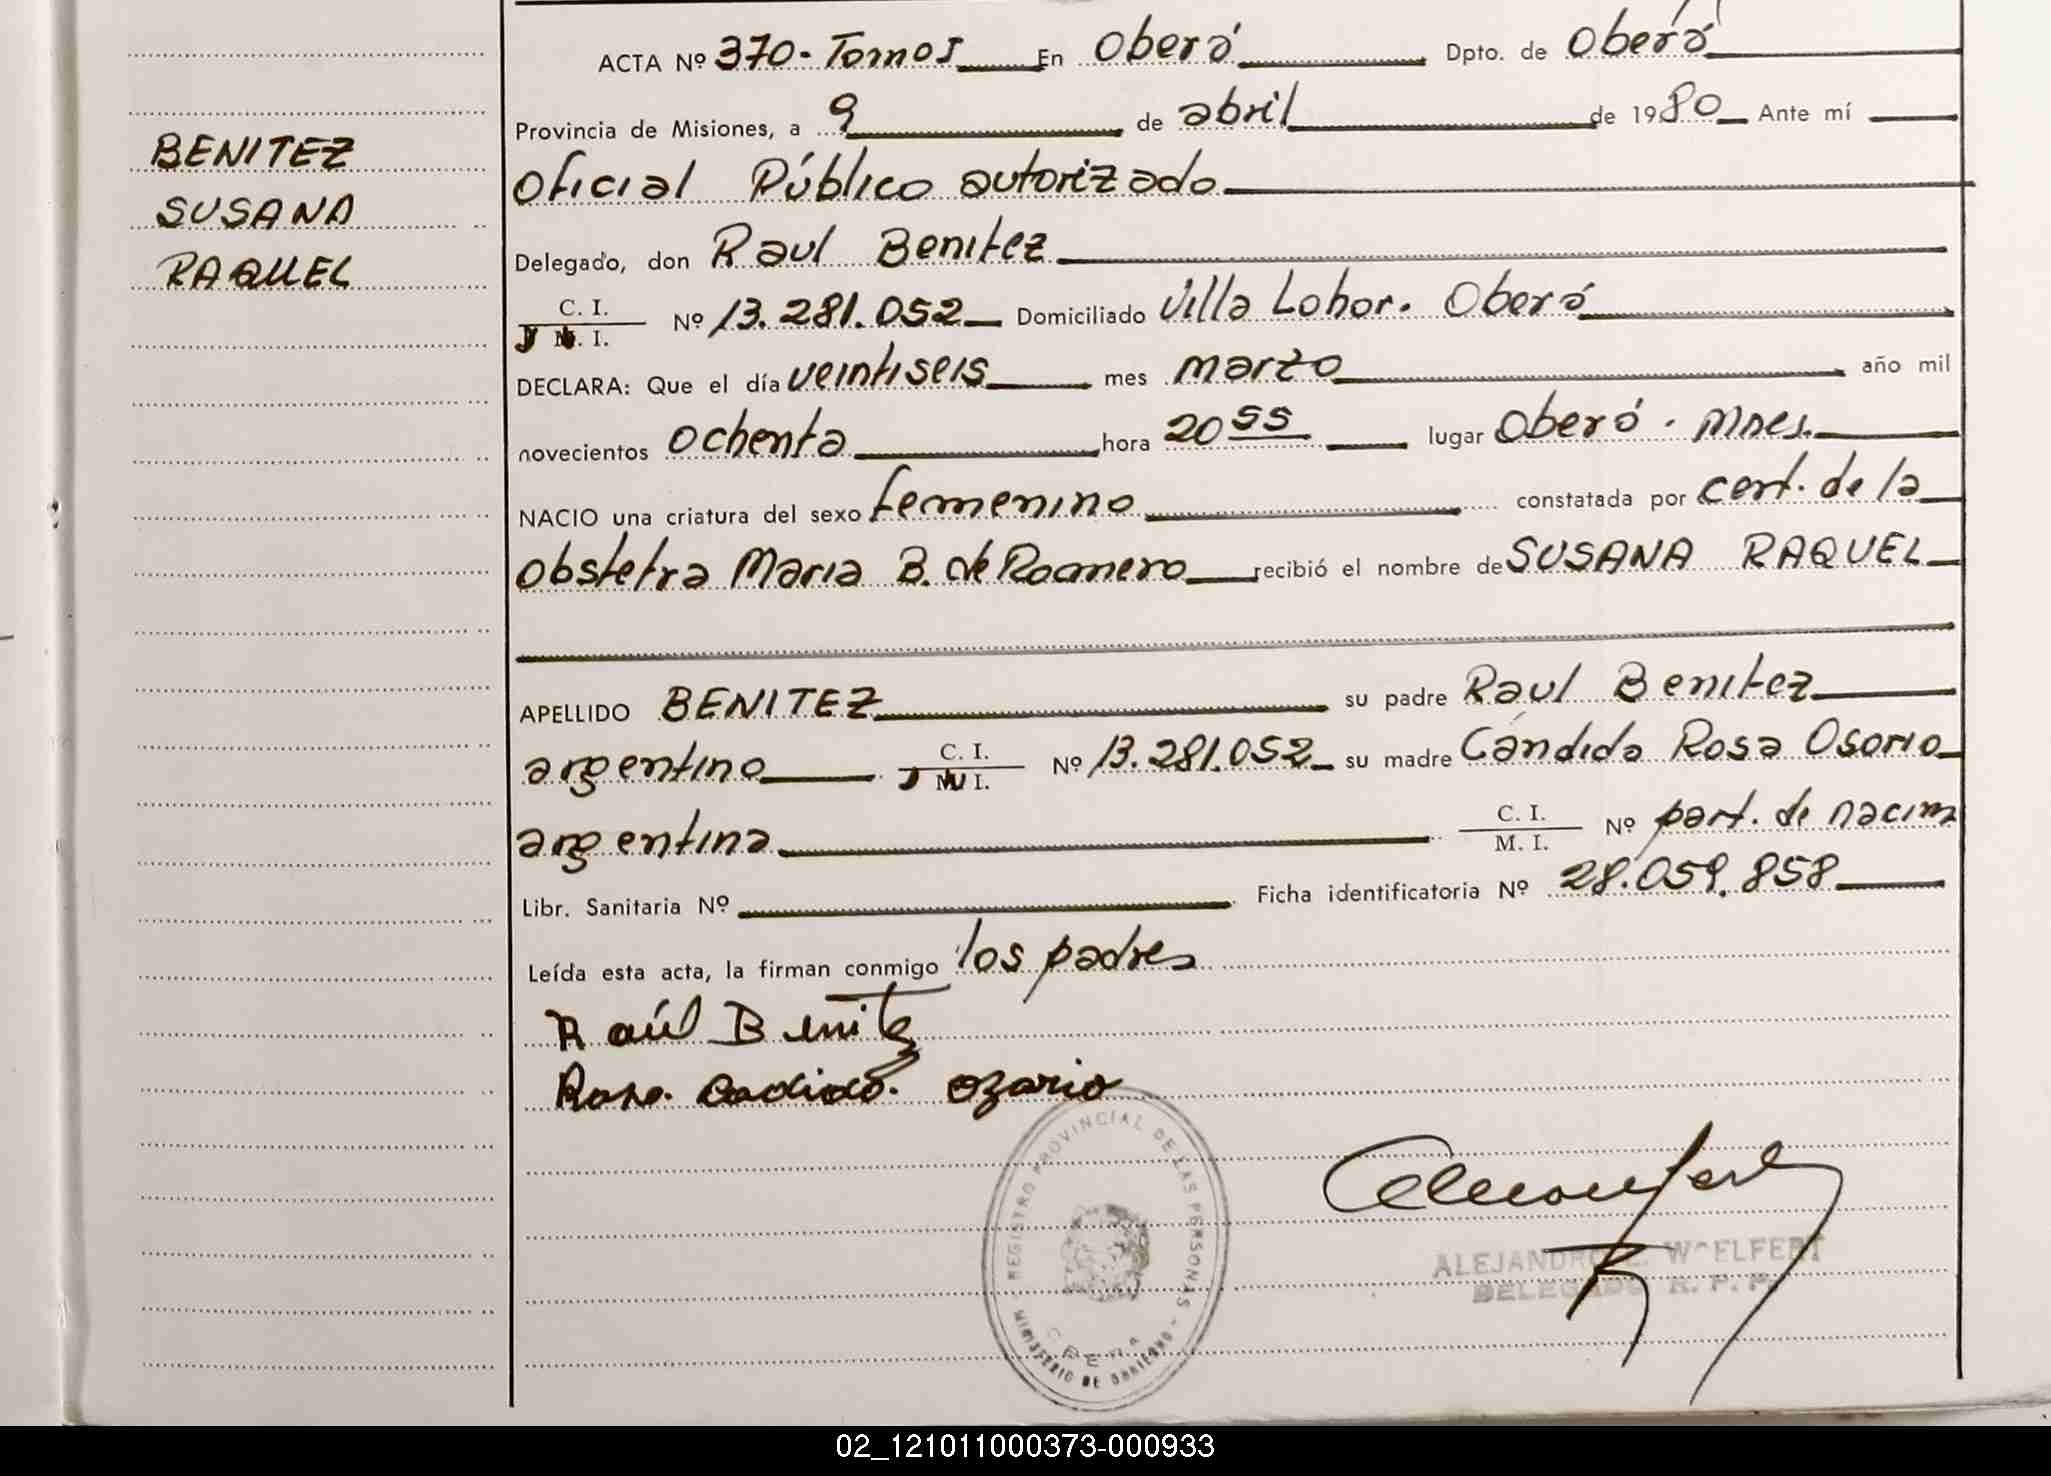 ACTA Nº 370- Tomos En Oberá Dpto. de Oberá
Provincia de Misiones, a 9 de abril de 1980 Ante mí
BENITEZ
SUSANA
RAQUEL
Oficial Público autorizado
Delegado, don Raul Benitez
C. I.
M. I.
Nº 13.281.052 Domiciliado Villa Lohor. Oberá
DECLARA: Que el día veintiseis mes marzo año mil
novecientos ochenta hora 20 55 lugar Oberá. Mnes.
NACIO una criatura del sexo femenino constatada por cert. de la
obstetra Maria B. de Romero recibió el nombre de SUSANA RAQUEL
APELLIDO BENITEZ su padre Raul Benitez
argentino C. I. M. I. Nº 13.281.052 su madre Cándida Rosa Osorio
argentina C. I. M. I. Nº part. de nacim
Libr. Sanitaria Nº Ficha identificatoria Nº 28.059.858
Leída esta acta, la firman conmigo los padres
Raúl Benitez
Rosa. Cadida. Ozorio
REGISTRO PROVINCIAL DE LAS PERSONAS
MINISTERIO DE GOBIERNO
OBERA
ALEJANDRO WOELFERT
DELEGADO R. P. P.
02_121011000373-000933